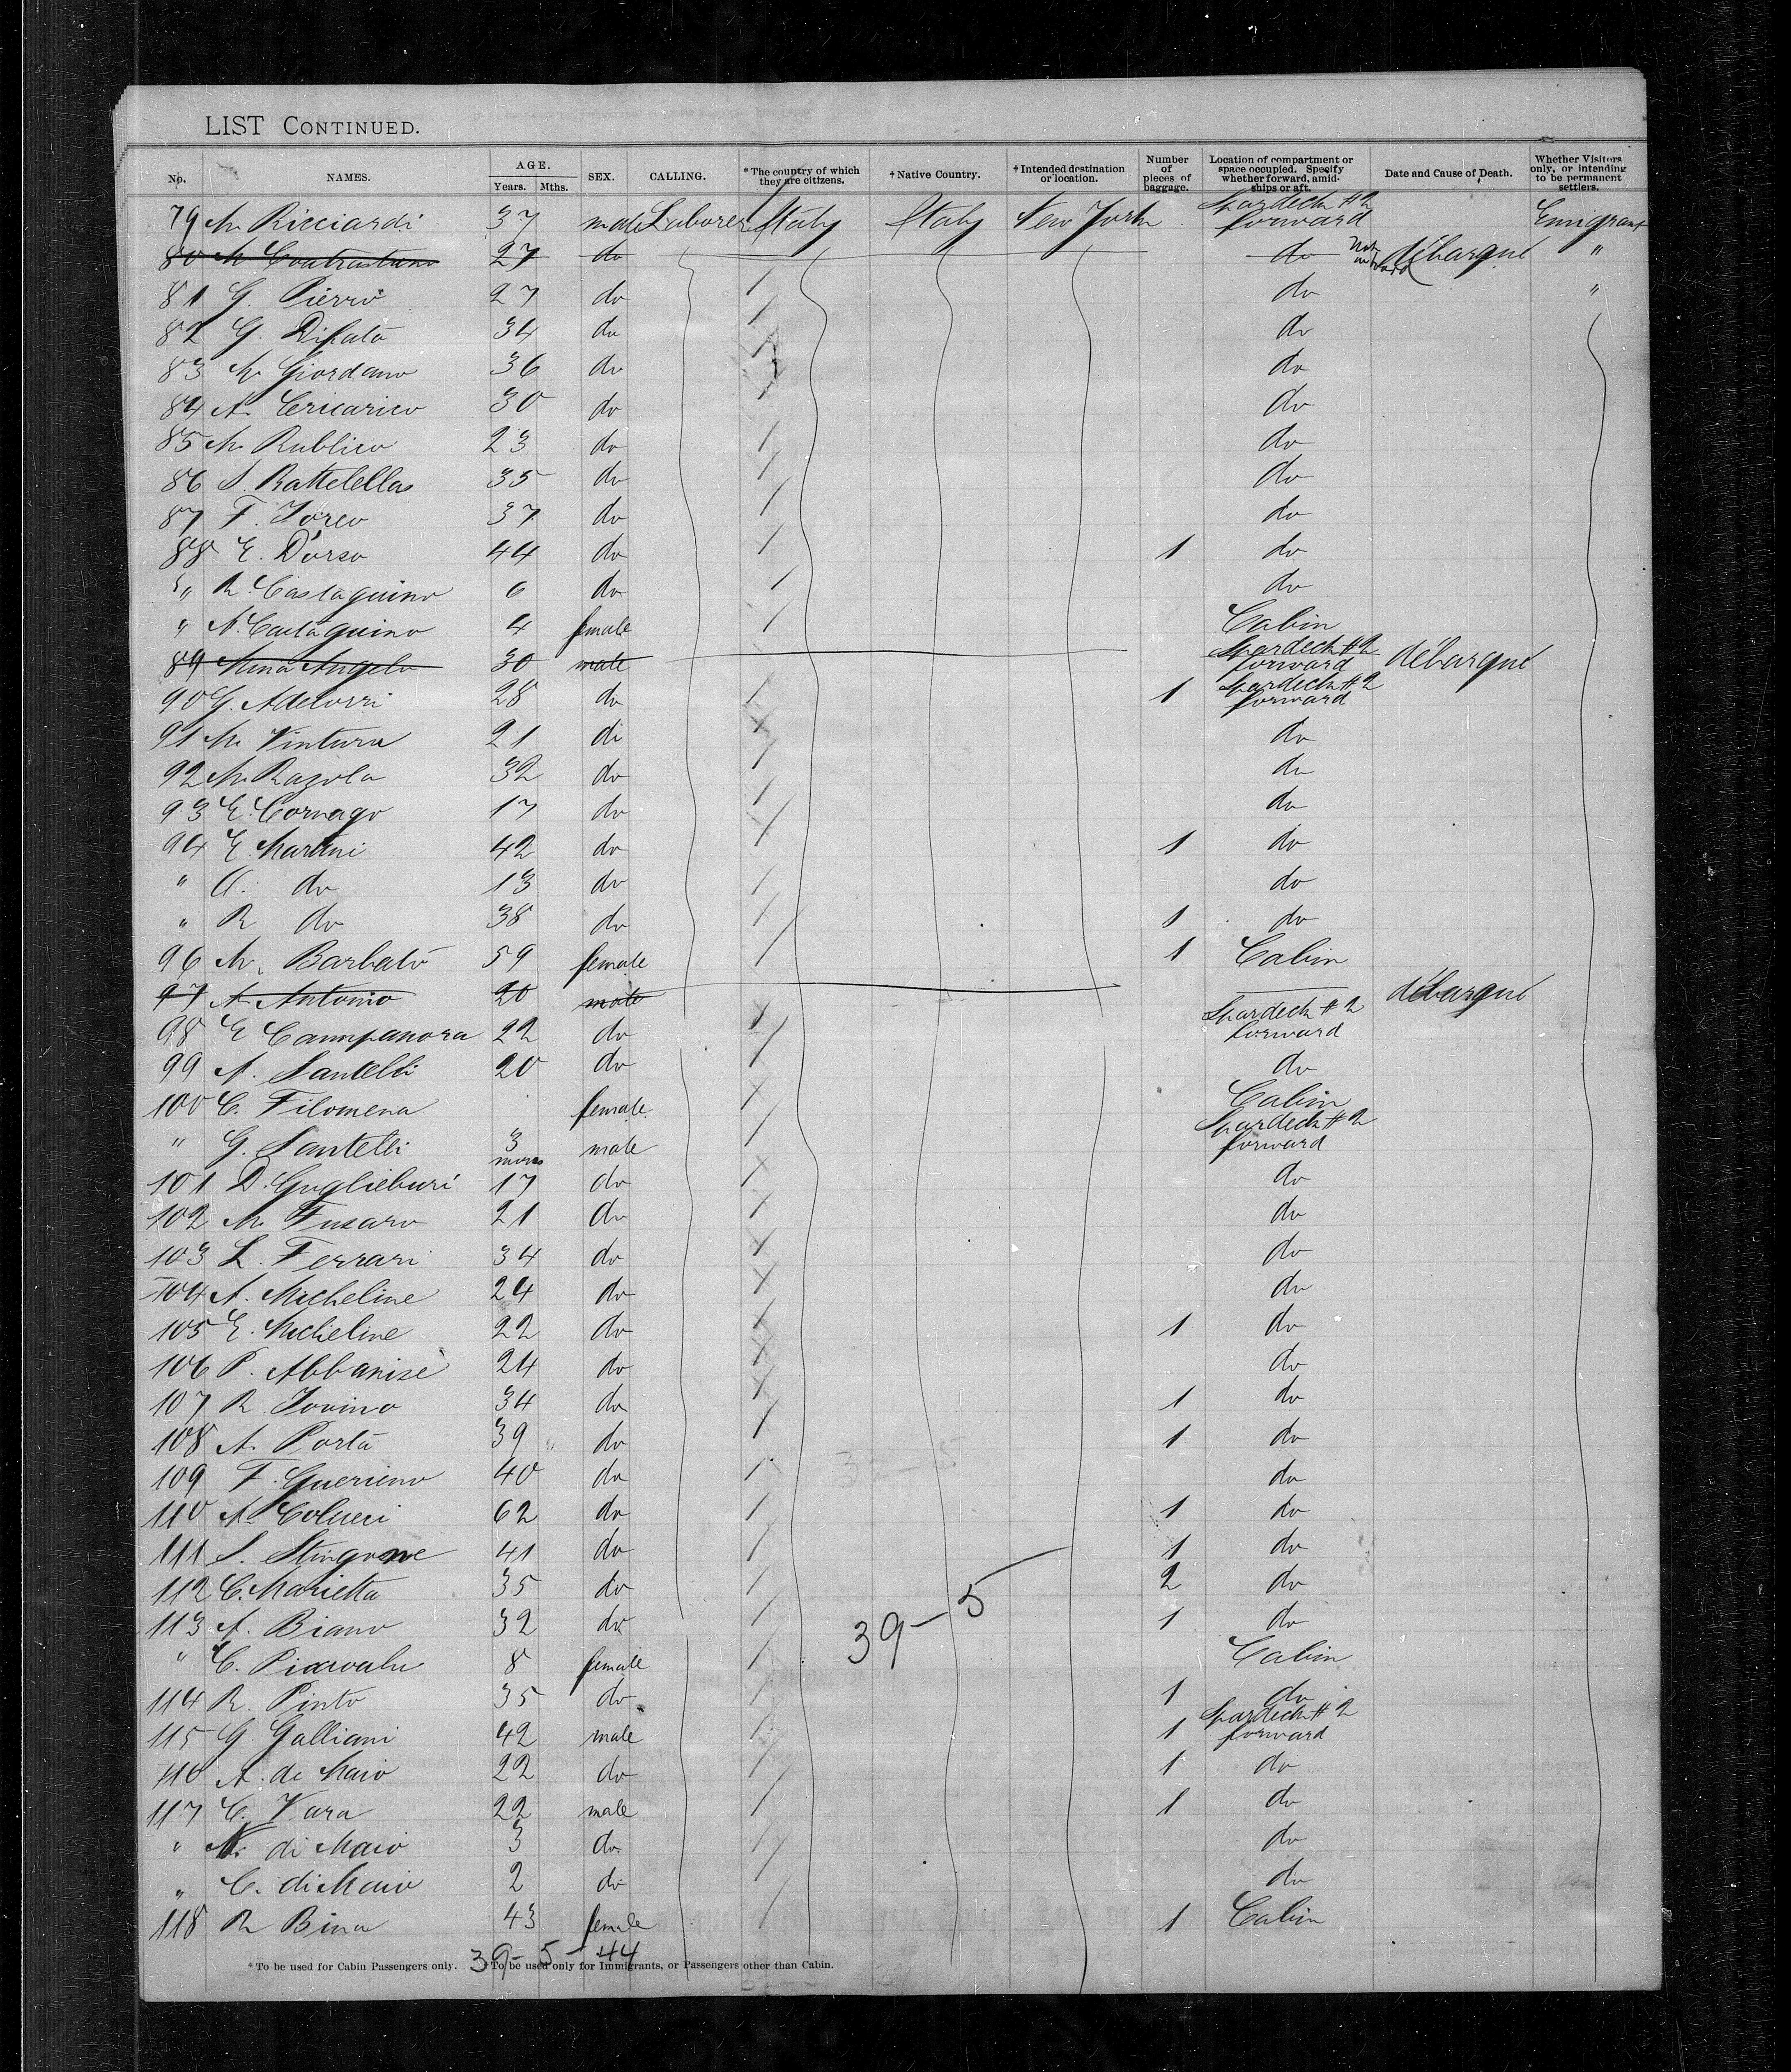 LIST CONTINUED.
No. NAMES. AGE. Years. Mths. SEX. CALLING. *The country of which they are citizens. †Native Country. †Intended destination or location. Number of pieces of baggage. Location of compartment or space occupied. Specify whether forward, amidships or aft. Date and Cause of Death. Whether Visitors only, or intending to be permanent settlers.
79 M. Ricciardi 37 male Laborer Italy Italy New York Spardeck #2 forward Emigrant
80 27 do do Not on board débarqué "
81 G. Pierro 27 do do "
82 G. Difato 34 do do
83 M. Giordano 36 do do
84 A. 30 do do
85 M. Rublico 23 do do
86 S. Rattelellas 35 do do
87 F. Iorco 37 do do
88 E. D'orso 44 do 1 do
" R. Castaguino 6 do do
" A. Castaguino 4 female Cabin
89 Angelo 30 male Spardeck #2 forward débarqué
90 G. Adelorri 28 do 1 Spardeck #2 forward
91 M. Vintura 21 di do
92 M. Razola 32 do do
93 E. Cornago 17 do do
94 E. Martini 42 do 1 do
" A. do 13 do do
" R do 38 do 1 do
96 M. Barbato 59 female 1 Cabin
97 A. Antonio 20 male débarqué
98 E Campanora 22 do Spardeck #2 forward
99 A. Santelli 20 do do
100 C. Filomena female Cabin
" G. Santelli 3 mons male Spardeck #2 forward
101 D. Guglieburi 17 do do
102 M. Fusaro 21 do do
103 L. Ferrari 34 do do
104 A. Micheline 24 do do
105 E. Micheline 22 do 1 do
106 P. Abbanise 24 do do
107 R. Iovino 34 do 1 do
108 A. Porta 39 do 1 do
109 F. Guerieno 40 do do
110 A. Colucci 62 do 1 do
111 S. Stingone 41 do 1 do
112 C. Marietta 35 do 2 do
113 A. Biano 32 do 1 do
39 - 5
" C. 8 female Cabin
114 R. Pinto 35 do 1 do
115 G. Galliani 42 male 1 Spardeck #2 forward
116 A. de Maio 22 do 1 do
117 C. Vara 22 male 1 do
" N. di Maio 3 do do
" C. di Maio 2 do do
118 R Bina 43 female 1 Cabin
39 - 5 - 44
*To be used for Cabin Passengers only. †To be used only for Immigrants, or Passengers other than Cabin.